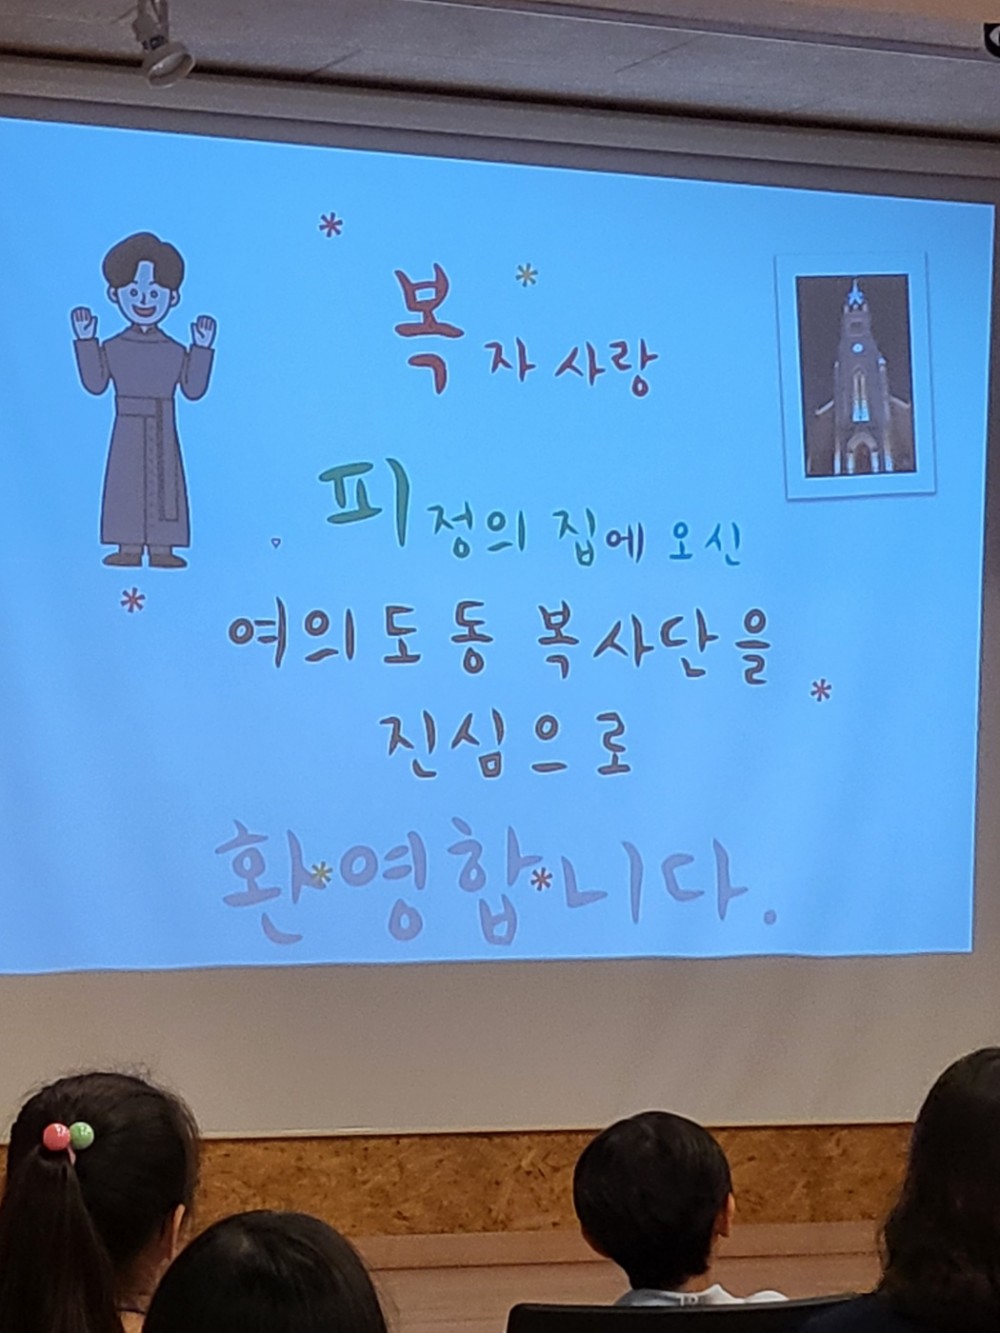 복자 사랑
피정의 집에 오신
여의도동 복사단을
진심으로
환영합니다.